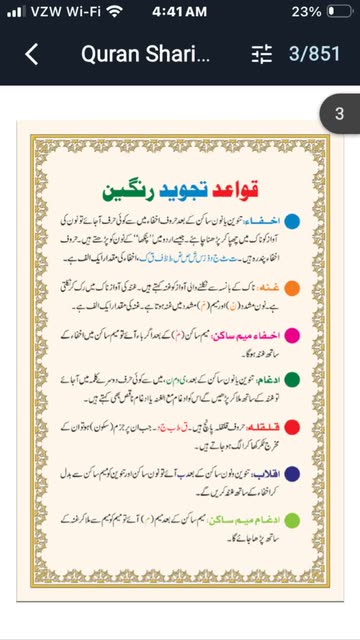 VZW Wi-Fi 4:41 AM 23%
Quran Shari... 3/851
3
قواعد تجوید رنگین
اخفاء: تنوین یا نون ساکن کے بعد حروف اخفاء میں سے کوئی حرف آجائے تو نون کی
آواز کو ناک میں چھپا کر پڑھنا چاہئے۔ جیسے اردو میں "پنکھا" کے نون کو پڑھتے ہیں۔ حروف
اخفاء پندرہ ہیں۔ ت ث ج د ذ ز س ش ص ض ط ظ ف ق ک، اخفاء کی مقدار ایک الف ہے۔
غنہ: ناک کے بانسے سے نکلنے والی آواز کو غنہ کہتے ہیں۔ غنہ کی آواز ناک میں رک کر نکلتی
ہے۔ نون مشدد (نّ) اور میم (مّ) مشدد میں غنہ ہوتا ہے۔ غنہ کی مقدار ایک الف ہے۔
اخفاء میم ساکن: میم ساکن (مْ) کے بعد اگر باء آئے تو میم ساکن میں اخفاء کے
ساتھ غنہ ہوگا۔
ادغام: تنوین یا نون ساکن کے بعد، ی و م ن، میں سے کوئی حرف دوسرے کلمہ میں آجائے
تو غنہ کے ساتھ ملا کر پڑھیں گے اس کو ادغام مع الغنہ یا ادغام ناقص بھی کہتے ہیں۔
قلقلہ: حروف قلقلہ پانچ ہیں۔ ق ط ب ج د۔ جب ان پر جزم (سکون) ہو تو ان کے
مخرج ٹکر کھا کر الگ ہو جاتے ہیں۔
اقلاب: تنوین و نون ساکن کے بعد ب آئے تو نون ساکن اور تنوین کو میم ساکن سے بدل
کر اخفاء کے ساتھ غنہ کریں گے۔
ادغام میم ساکن: میم ساکن کے بعد میم (م) آئے تو میم کو میم سے ملا کر غنہ کے
ساتھ پڑھا جائے گا۔